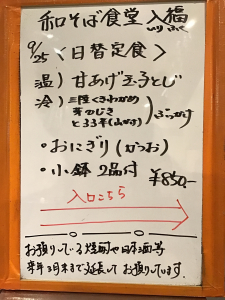 和そば食堂 入福
いり ふく
9/25 〈日替定食〉
温) 甘あげ玉子とじ
冷) 三陸くきわかめ
芽ひじき
とろろ(山かけ)
ぶっかけ
・おにぎり(かつお)
・小鉢 2品付
¥850-
入口こちら
お預りしている焼酎や日本酒等
来年3月末まで延長して お預りいます。